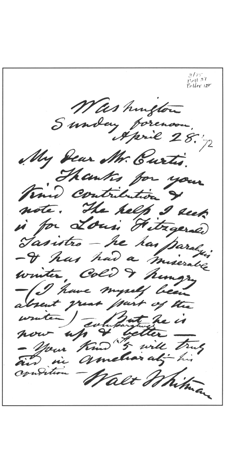 Washington
Sunday forenoon,
April 28. '72
My dear Mr. Curtis.
Thanks for your
kind contribution &
note. The help I seek
is for Louis Fitzgerald
Tasistro – he has paralysis
– & has had a miserable
winter, cold & hungry
– (I have myself been
absent great part of the
winter) – But he is
now up & better –
– Your kind will truly
aid in ameliorating his
condition –
Walt Whitman